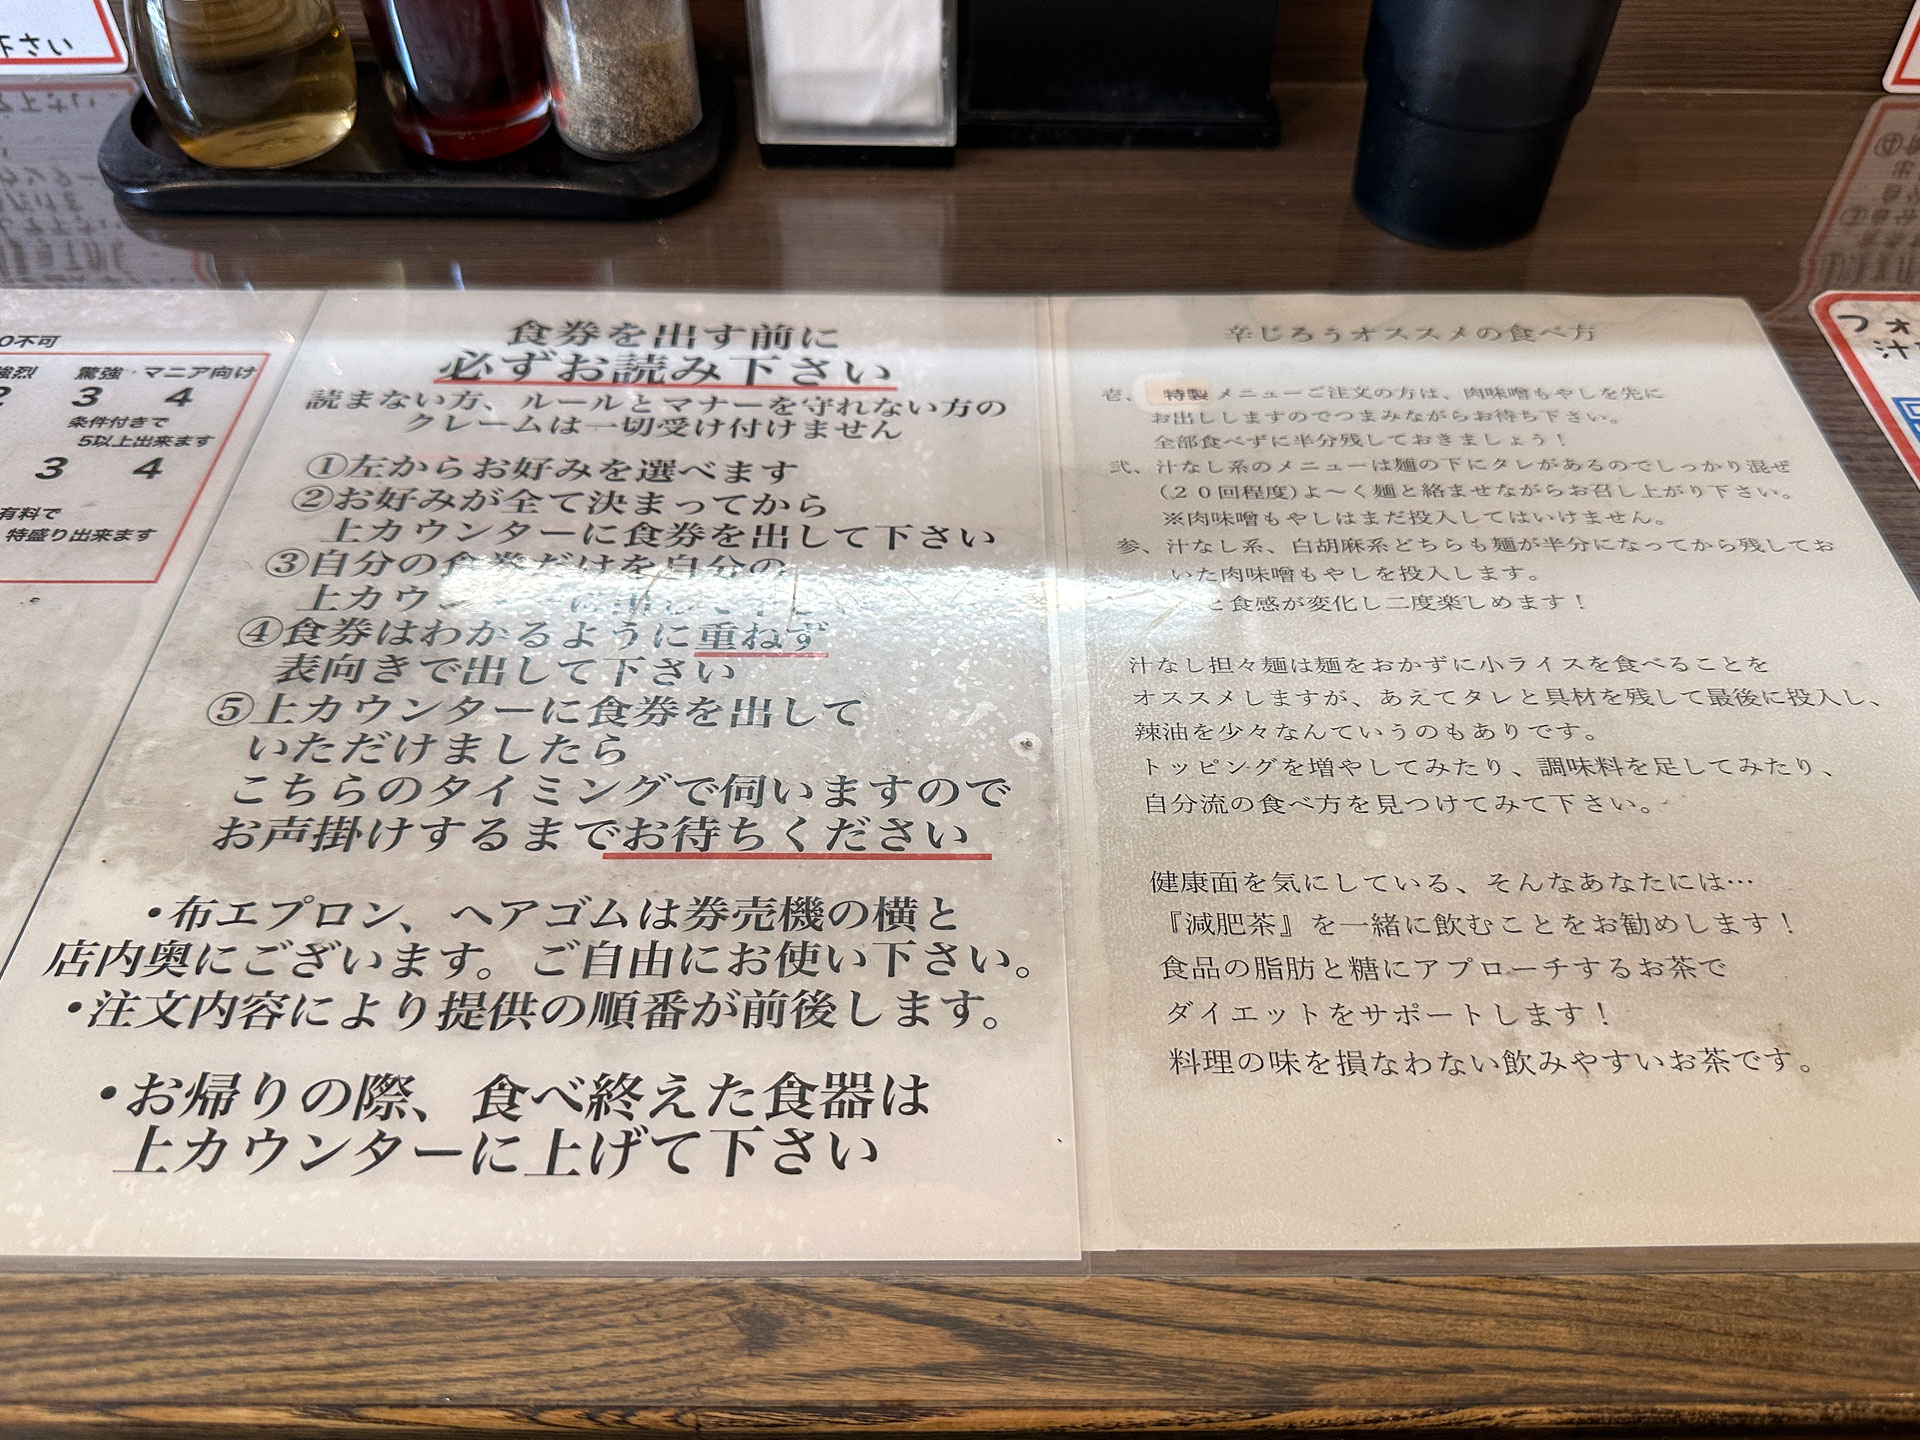 下さい
0不可
強烈 驚強・マニア向け
2 3 4
条件付きで
5以上出来ます
3 4
有料で
特盛り出来ます
食券を出す前に
必ずお読み下さい
読まない方、ルールとマナーを守れない方の
クレームは一切受け付けません
①左からお好みを選べます
②お好みが全て決まってから
上カウンターに食券を出して下さい
③自分の食券だけを自分の
上カウン
④食券はわかるように重ねず
表向きで出して下さい
⑤上カウンターに食券を出して
いただけましたら
こちらのタイミングで伺いますので
お声掛けするまでお待ちください
・布エプロン、ヘアゴムは券売機の横と
店内奥にございます。ご自由にお使い下さい。
・注文内容により提供の順番が前後します。
・お帰りの際、食べ終えた食器は
上カウンターに上げて下さい
辛じろうオススメの食べ方
壱、特製メニューご注文の方は、肉味噌もやしを先に
お出ししますのでつまみながらお待ち下さい。
全部食べずに半分残しておきましょう！
弐、汁なし系のメニューは麺の下にタレがあるのでしっかり混ぜ
(２０回程度)よ〜く麺と絡ませながらお召し上がり下さい。
※肉味噌もやしはまだ投入してはいけません。
参、汁なし系、白胡麻系どちらも麺が半分になってから残してお
いた肉味噌もやしを投入します。
と食感が変化し二度楽しめます！
汁なし担々麺は麺をおかずに小ライスを食べることを
オススメしますが、あえてタレと具材を残して最後に投入し、
辣油を少々なんていうのもありです。
トッピングを増やしてみたり、調味料を足してみたり、
自分流の食べ方を見つけてみて下さい。
健康面を気にしている、そんなあなたには…
『減肥茶』を一緒に飲むことをお勧めします！
食品の脂肪と糖にアプローチするお茶で
ダイエットをサポートします！
料理の味を損なわない飲みやすいお茶です。
フォ
汁